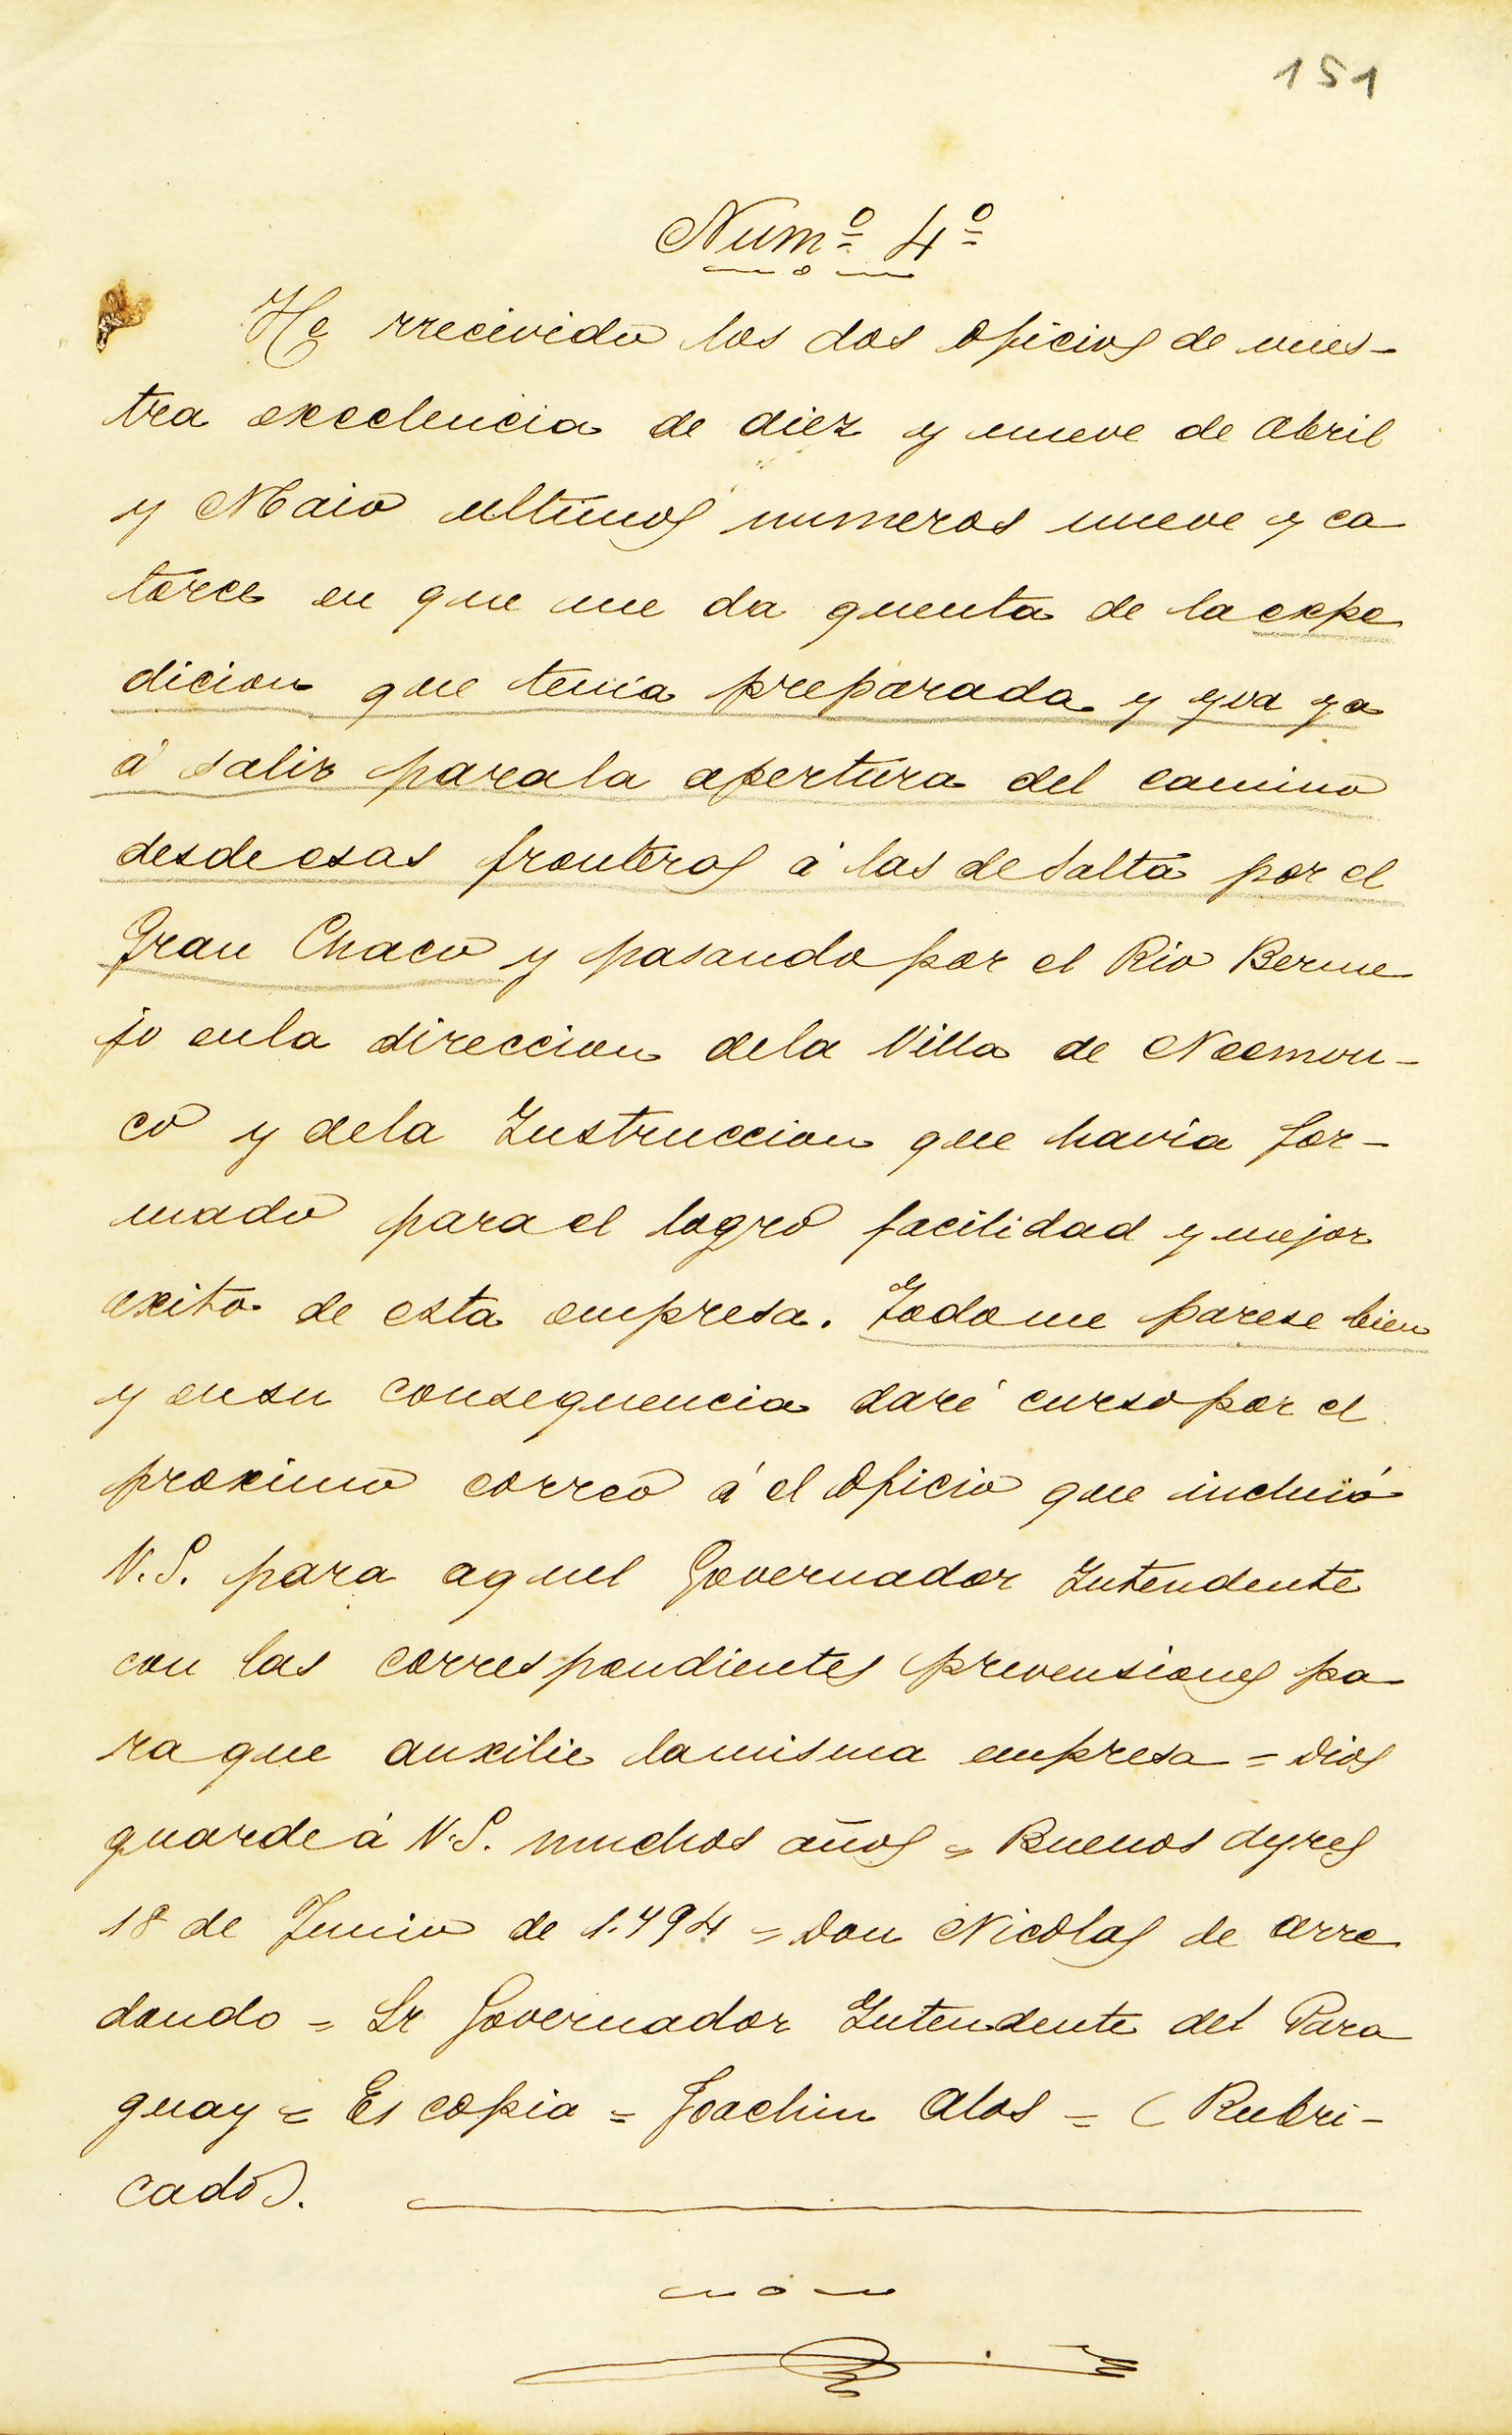 151
Numº 4º
He rrecivido los dos oficios de vues-
tra execlencia de diez y nueve de Abril
y Maio ultimos numeros nueve y ca
torce en que me da quenta de la expe
dicion que tenia preparada y yva ya
á salir parala apertura del camino
desde esas fronteras á las de Salta por el
Gran Chaco y pasando por el Rio Berme
jo enla direccion dela Villa de Neemvu-
co y dela Instruccion que havia for-
mado para el logro facilidad y mejor
exito de esta empresa. Todo me parese bien
y ensu consequencia daré curso por el
proximo correo á el oficio que incluió
V.S. para aquel Governador Intendente
con las correspondientes prevensiones pa
ra que auxilie lamisma empresa = Dios
guarde á V.S. muchos años = Buenos Ayres
18 de Junio de 1.794 = Don Nicolas de Arre
dondo = Sr Governador Intendente del Para
guay = Es copia = Joachin Alos = (Rubri-
cado).